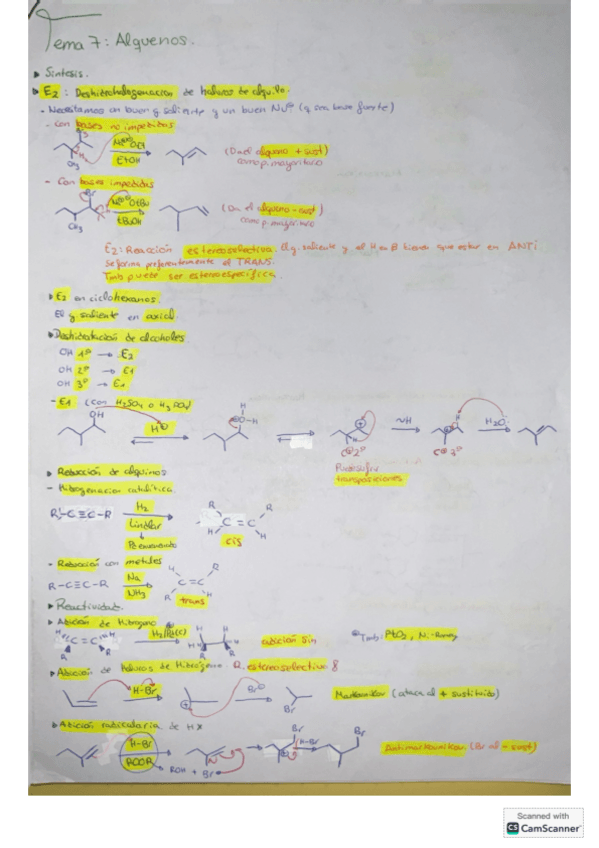 Tema 7: Alquenos.
▸ Síntesis.
▸ E2: Deshidrohalogenación de haluros de alquilo.
- Necesitamos un buen g. saliente y un buen Nu⊖ (q sea base fuerte)
- Con bases no impedidas
EtOH
CH3
(Da el alqueno + sust)
como p. mayoritario
- Con bases impedidas
Br
H
tBuOH
CH3
(Da el alqueno - sust)
como p. mayoritario
E2: Reacción estereoselectiva. El g. saliente y el H en β tienen que estar en ANTI
Se forma preferentemente el TRANS.
Tmb puede ser estereoespecífica.
▸ E2 en ciclohexanos.
El g saliente en axial
▸ Deshidratación de alcoholes
OH 1º → E2
OH 2º → E1
OH 3º → E1
- E1. (con H2SO4 o H3PO4)
OH
H⊕
H
⊕O-H
H
C⊕2º
~H
C⊕3º
H
H2O
transposiciones
▸ Reducción de alquinos
- Hidrogenación catalítica.
R-C≡C-R
H2
Lindlar
R
C=C
R
H
H
cis
- Reducción con metales
R-C≡C-R
Na
NH3
H
C=C
R
R
H
trans
▸ Reactividad.
▸ Adición de Hidrógeno
C=C
H2/Pd(C)
H
H
R
R
adición sin
Tmb: PtO2, Ni-Raney
▸ Adición de haluros de Hidrógeno. R. estereoselectiva
H-Br
⊕
Br⊖
Br
Markovnikov (ataca al + sustituido)
▸ Adición radicalaria de HX
H-Br
ROOR
ROH + Br·
Br
H-Br
Br
Antimarkovnikov. (Br al - sust)
Scanned with
CS CamScanner